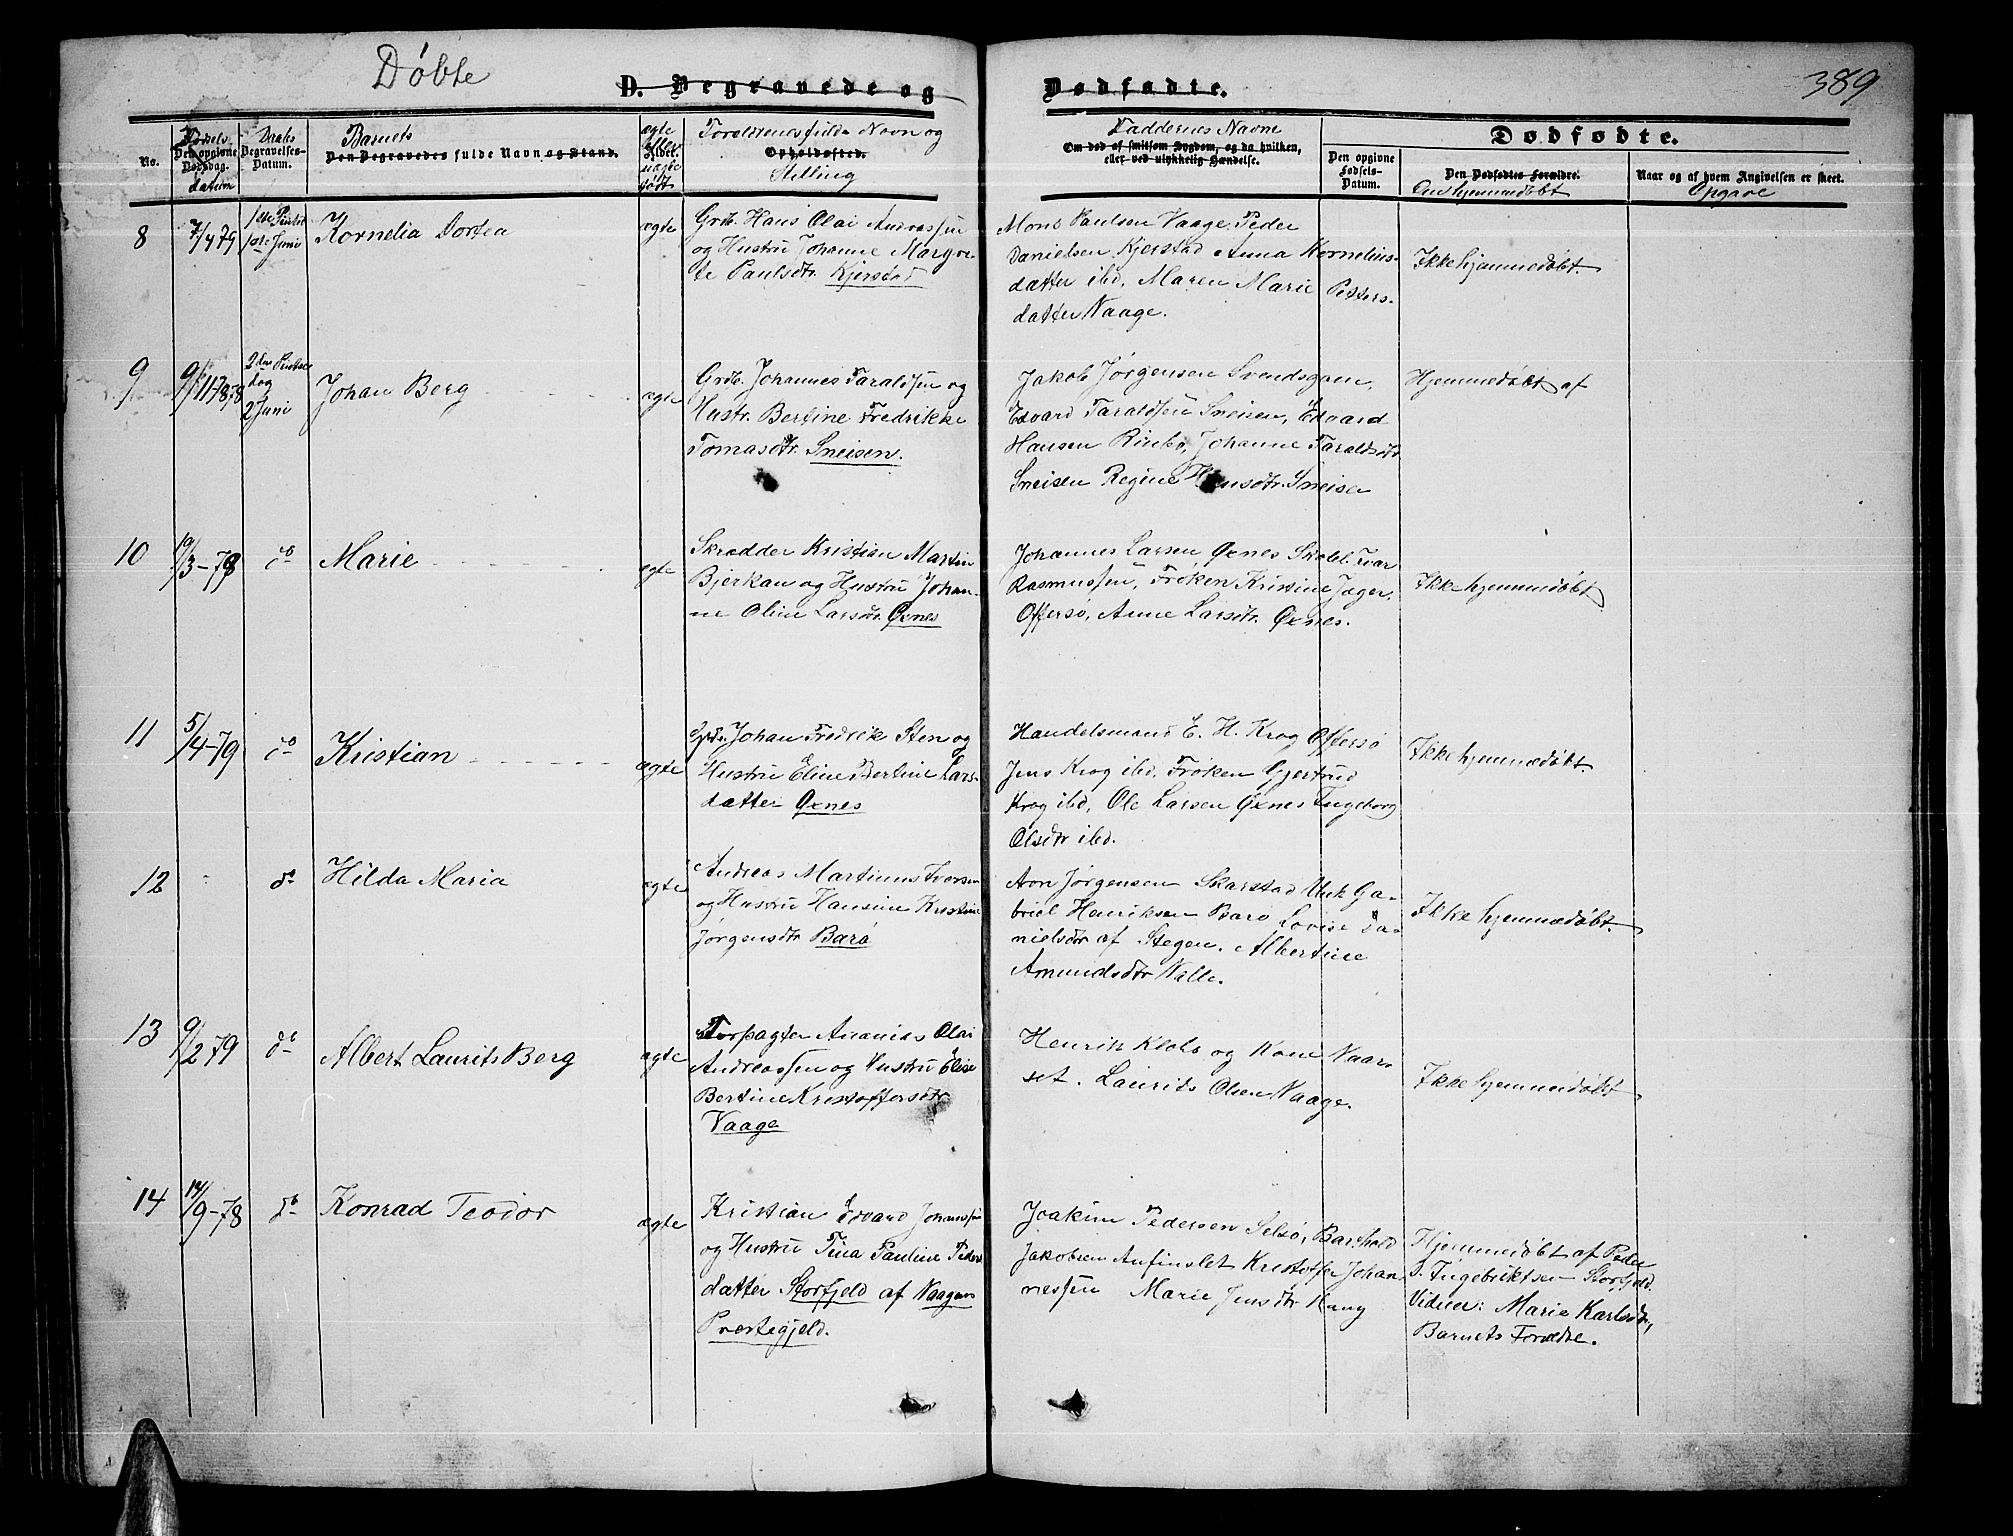 Døbte
D. Begravede og
Dødfødte.
389
No.
Fødsels-
Den opgivne
Dødsdag.
datum
Daabs
Begravelses-
Datum.
Barnets
Den Begravedes fulde Navn og Stand.
ægte
eller
uægte
født
Forældrenes fulde Navn og
Opholdssted.
Stilling
Faddernes Navne
Om død af smitsom Sygdom, og da hvilken,
eller ved ulykkelig Hændelse.
Dødfødte.
Den opgivne
Fødsels-
Datum.
Den Dødfødtes Forældre.
Om hjemmedøbt
Naar og af hvem Angivelsen er skeet.
Opgave
8
7/4 79
1ste Juni
Kornelia Dortea
ægte
Grdb. Hans Olai Andreassen
og Hustru Johanne Margre-
te Paulsdtr. Kjerstad
Mons Paulsen Vaage, Peder
Danielsen Kjerstad Anna Kornelius-
datter ibd, Maren Marie Petters-
datter Vaage.
Ikke hjemmedøbt.
9
9/11 78
2den Pintse
dag
2 Juni
Johan Berg
ægte
Grdb. Johannes Taraldsen og
Hustr. Bertine Fredrikke
Tomasdtr. Sneisen.
Jakob Jørgensen Svendsgam,
Edvard Taraldsen Sneisen, Edvard
Hansen Rinbø, Johanne Taraldsdtr
Sneisen Regine Hansdtr. Sneisen
Hjemmedøbt af
10
10/3-79
do
Marie
ægte
Skrædder Kristian Martin
Bjerkan og Hustru Johan-
ne Oline Larsdtr. Øxnes
Johannes Larsen Øxnes Skoleb. Ivar
Rasmussen, Frøken Kristine Jæger,
Offersø, Anne Larsdtr. Øxnes.
Ikke hjemmedøbt
11
5/4-79
do
Kristian
ægte
Grdb. Johan Fredrik Sten og
Hustru Eline Bertine Lars-
datter Øxnes
Handelsmand E. H. Krog Offersø
Jens Krog ibd, Frøken Gjertrud
Krog ibd, Ole Larsen Øxnes Ingeborg
Olsdtr ibd.
Ikke hjemmedøbt.
12
do
Hilda Maria
ægte
Andreas Martinus Iversen
og Hustru Hansine Kristine
Jørgensdtr Barø
Aron Jørgensen Skarstad Unk Ga-
briel Henriksen Barø Lovise Da-
nielsdtr af Stegen. Albertine
Amundsdtr Valle.
Ikke hjemmedøbt.
13
9/2 79
do
Albert Laurits Berg
ægte
Forpagter Ananias Olai
Andreassen og Hustru Elise
Bertine Kristoffersdtr
Vaage
Henrik Klobo og Kone Naar-
set. Laurits Olsen Vaage.
Ikke hjemmedøbt
14
14/9-78
do
Konrad Teodor
ægte
Kristian Edvard Johansen
og Hustru Tina Pauline Peders
datter Storfjeld af Vaagens
Præstegjeld.
Joakim Pedersen Selsø, Barthold
Jakobsen Anfinslet Kristoffer Johan-
nessen Marie Jensdtr Haug
Hjemmedøbt af Peder
I. Ingebriktsen Storfjeld
Vidner: Marie Karlsdtr,
Barnets Forældre.